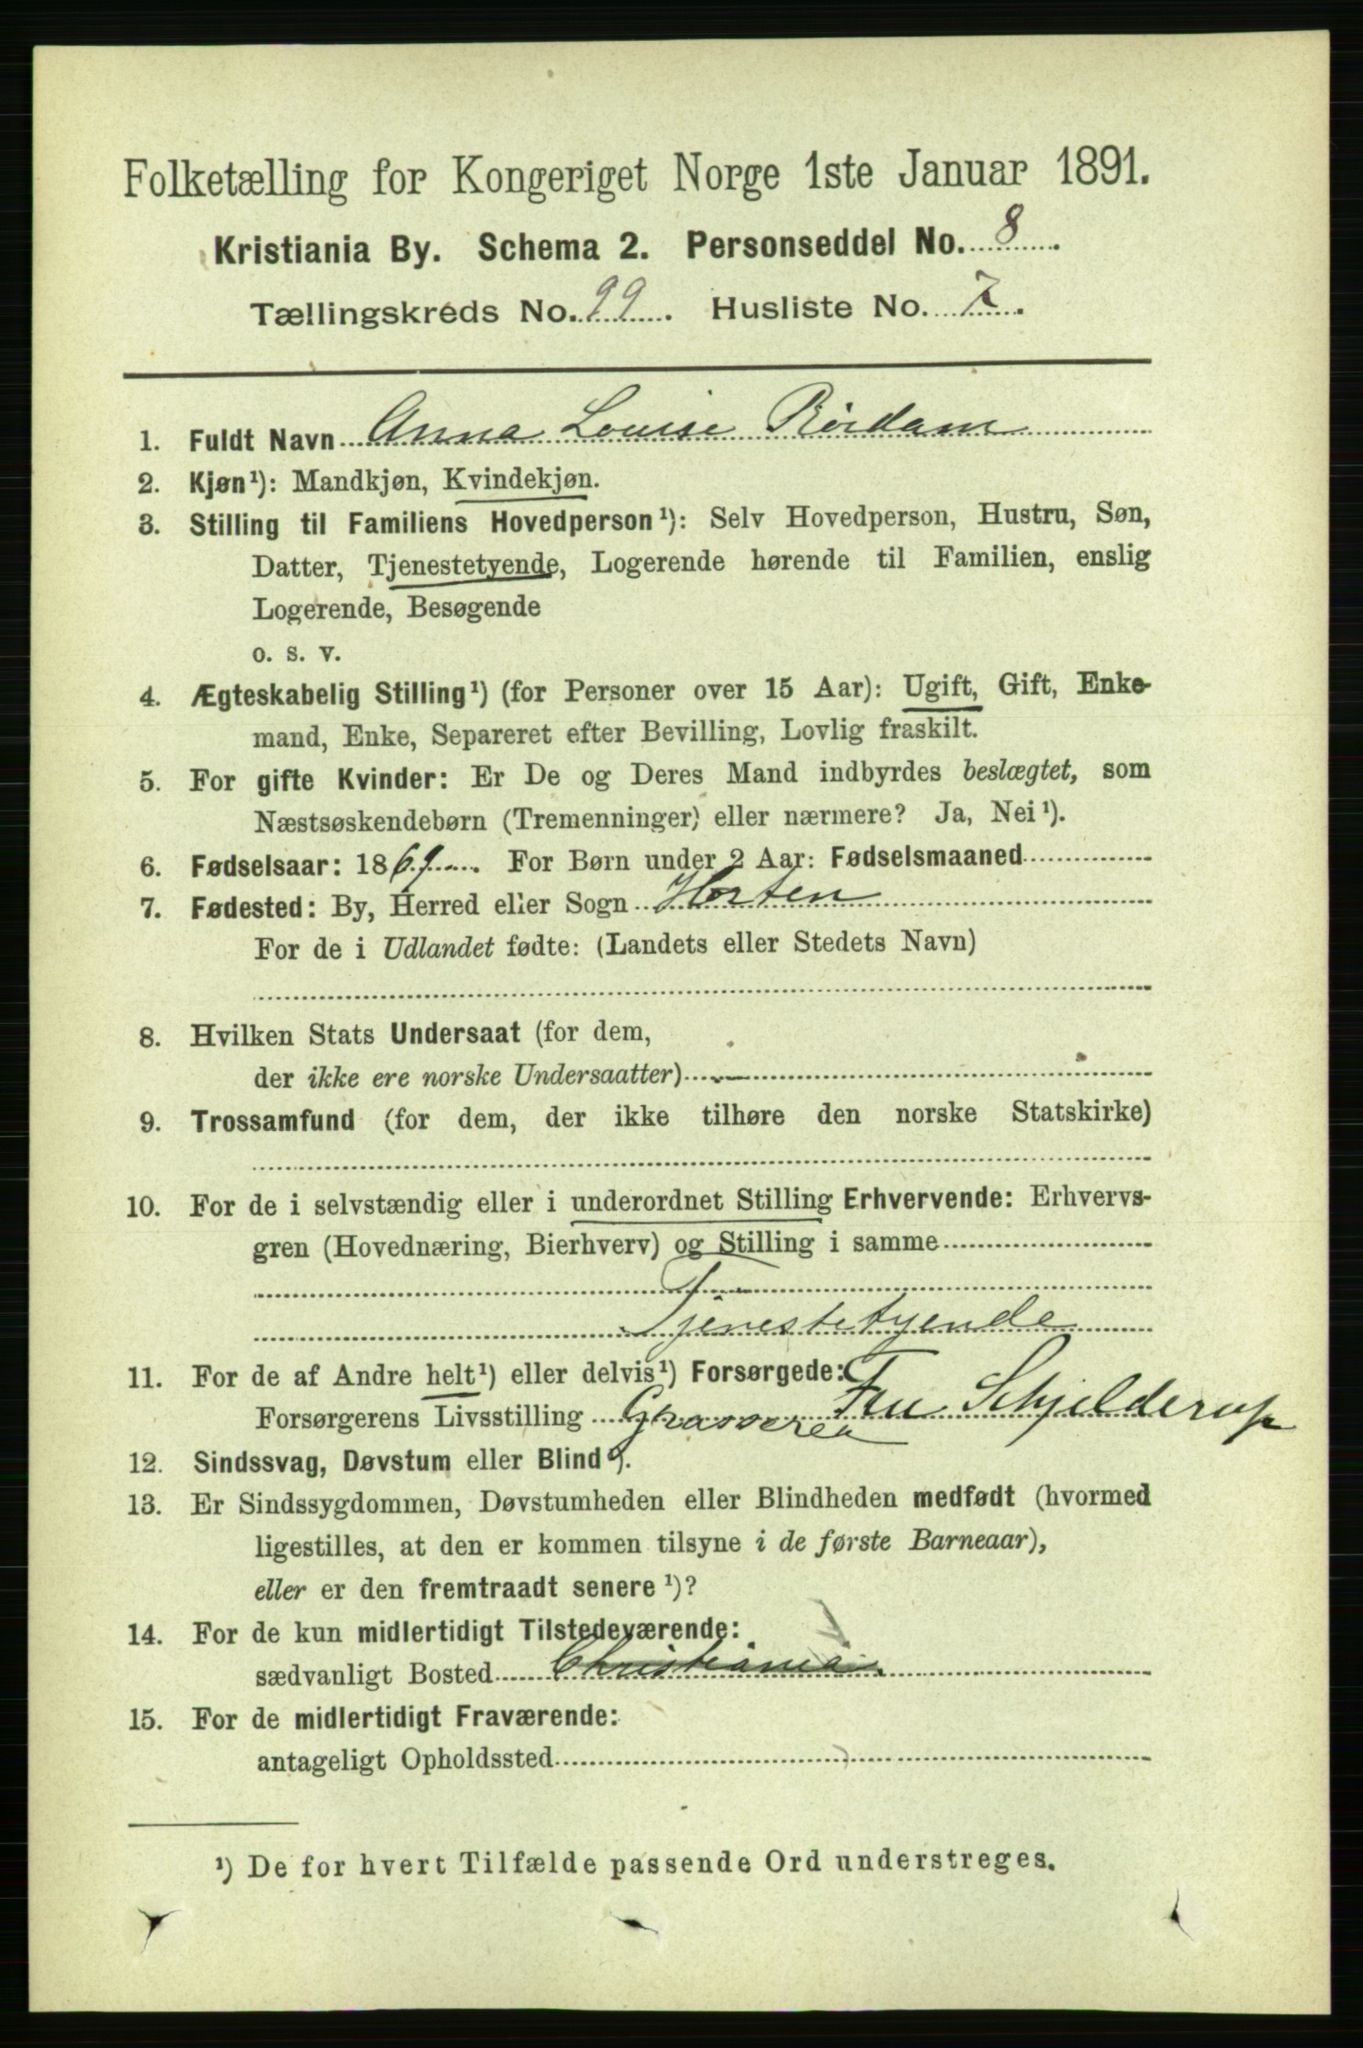 Folketælling for Kongeriget Norge 1ste Januar 1891.
Kristiania By. Schema 2. Personseddel No. 8.
Tællingskreds No. 99. Husliste No. 7.
1. Fuldt Navn Anna Louise Rördam
2. Kjøn¹): Mandkjøn, Kvindekjøn.
3. Stilling til Familiens Hovedperson¹): Selv Hovedperson, Hustru, Søn,
Datter, Tjenestetyende, Logerende hørende til Familien, enslig
Logerende, Besøgende
o. s. v.
4. Ægteskabelig Stilling¹) (for Personer over 15 Aar): Ugift, Gift, Enke-
mand, Enke, Separeret efter Bevilling, Lovlig fraskilt.
5. For gifte Kvinder: Er De og Deres Mand indbyrdes beslægtet, som
Næstsøskendebørn (Tremenninger) eller nærmere? Ja, Nei¹).
6. Fødselsaar: 1869. For Børn under 2 Aar: Fødselsmaaned
7. Fødested: By, Herred eller Sogn Horten
For de i Udlandet fødte: (Landets eller Stedets Navn)
8. Hvilken Stats Undersaat (for dem,
der ikke ere norske Undersaatter)
9. Trossamfund (for dem, der ikke tilhøre den norske Statskirke)
10. For de i selvstændig eller i underordnet Stilling Erhvervende: Erhvervs-
gren (Hovednæring, Bierhverv) og Stilling i samme
Tjenestetyende
11. For de af Andre helt¹) eller delvis¹) Forsørgede:
Forsørgerens Livsstilling Fru Schjelderup
12. Sindssvag, Døvstum eller Blind¹).
13. Er Sindssygdommen, Døvstumheden eller Blindheden medfødt (hvormed
ligestilles, at den er kommen tilsyne i de første Barneaar),
eller er den fremtraadt senere¹)?
14. For de kun midlertidigt Tilstedeværende:
sædvanligt Bosted Christiania
15. For de midlertidigt Fraværende:
antageligt Opholdssted
¹) De for hvert Tilfælde passende Ord understreges.